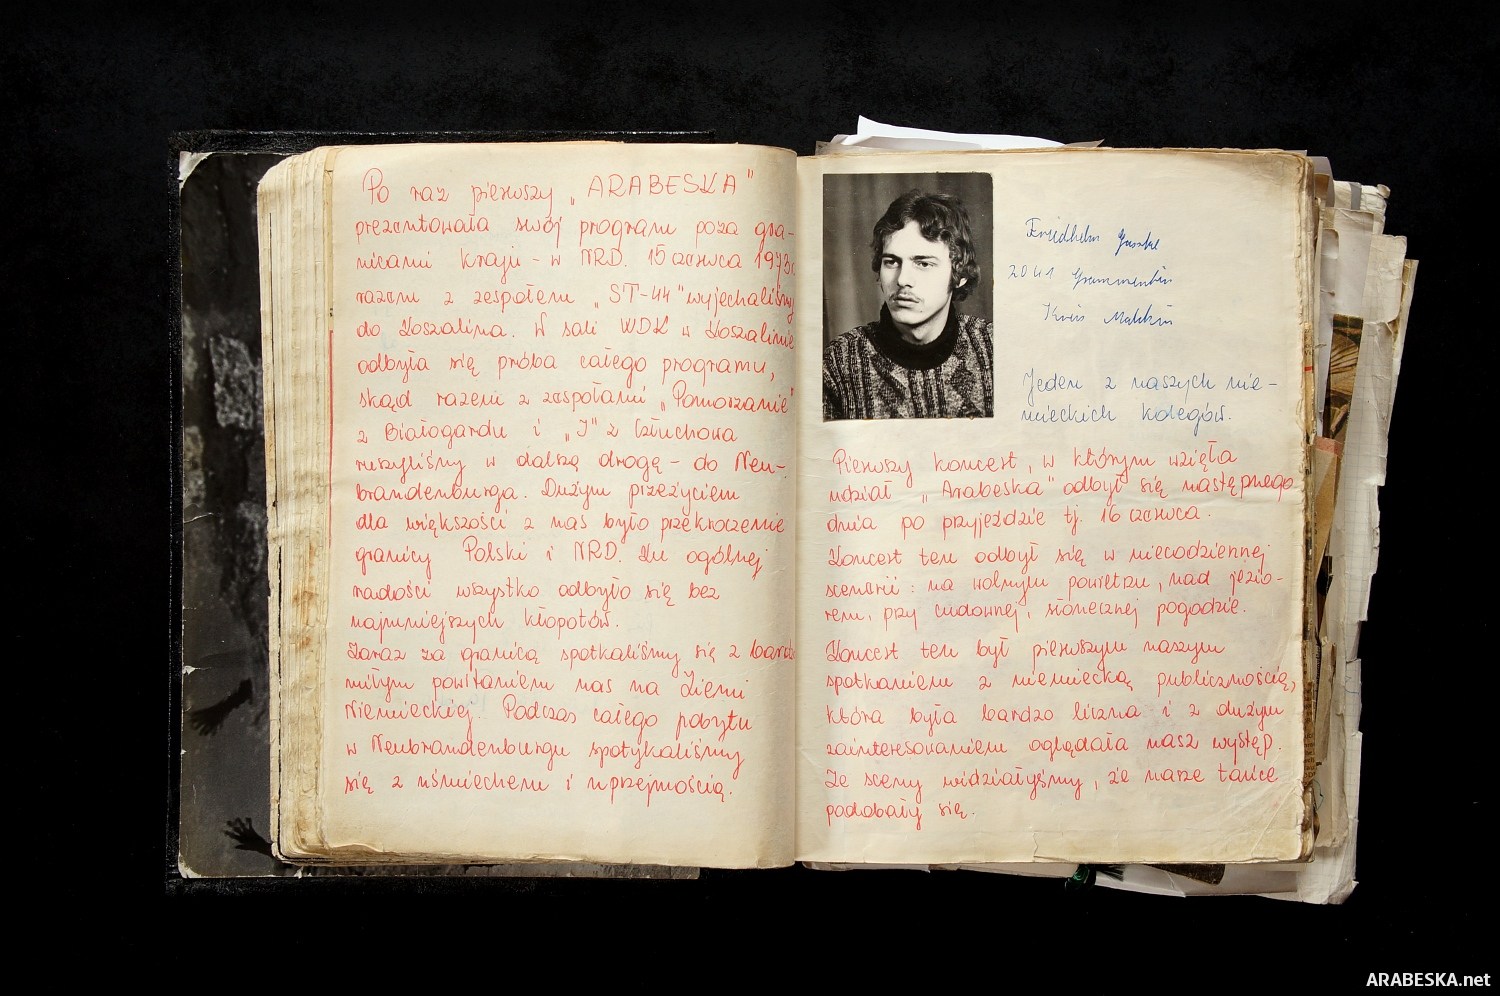 Po raz pierwszy „ARABESKA”
prezentowała swój program poza gra-
nicami kraju - w NRD. 15 czerwca 1973r.
razem z zespołem „ST-44” wyjechaliśmy
do Koszalina. W sali WDK w Koszalinie
odbyła się próba całego programu,
skąd razem z zespołami „Pomorzanie”
z Białogardu i „J” z Człuchowa
ruszyliśmy w dalszą drogę - do Neu-
brandenburga. Dużym przeżyciem
dla większości z nas było przekroczenie
granicy Polski i NRD. Ku ogólnej
radości wszystko odbyło się bez
najmniejszych kłopotów.
Zaraz za granicą spotkaliśmy się z bardzo
miłym powitaniem nas na Ziemi
Niemieckiej. Podczas całego pobytu
w Neubrandenburgu spotykaliśmy
się z uśmiechem i uprzejmością.
Friedhelm
2041 Grammentin
Kreis Malchin
Jeden z naszych nie-
mieckich kolegów.
Pierwszy koncert, w którym wzięła
udział „Arabeska” odbył się następnego
dnia po przyjeździe tj. 16 czerwca.
Koncert ten odbył się w niecodziennej
scenerii: na wolnym powietrzu, nad jezio-
rem, przy cudownej, słonecznej pogodzie.
Koncert ten był pierwszym naszym
spotkaniem z niemiecką publicznością,
która była bardzo liczna i z dużym
zainteresowaniem oglądała nasz występ.
Ze sceny widziałyśmy, że nasze tańce
podobały się.
ARABESKA.net